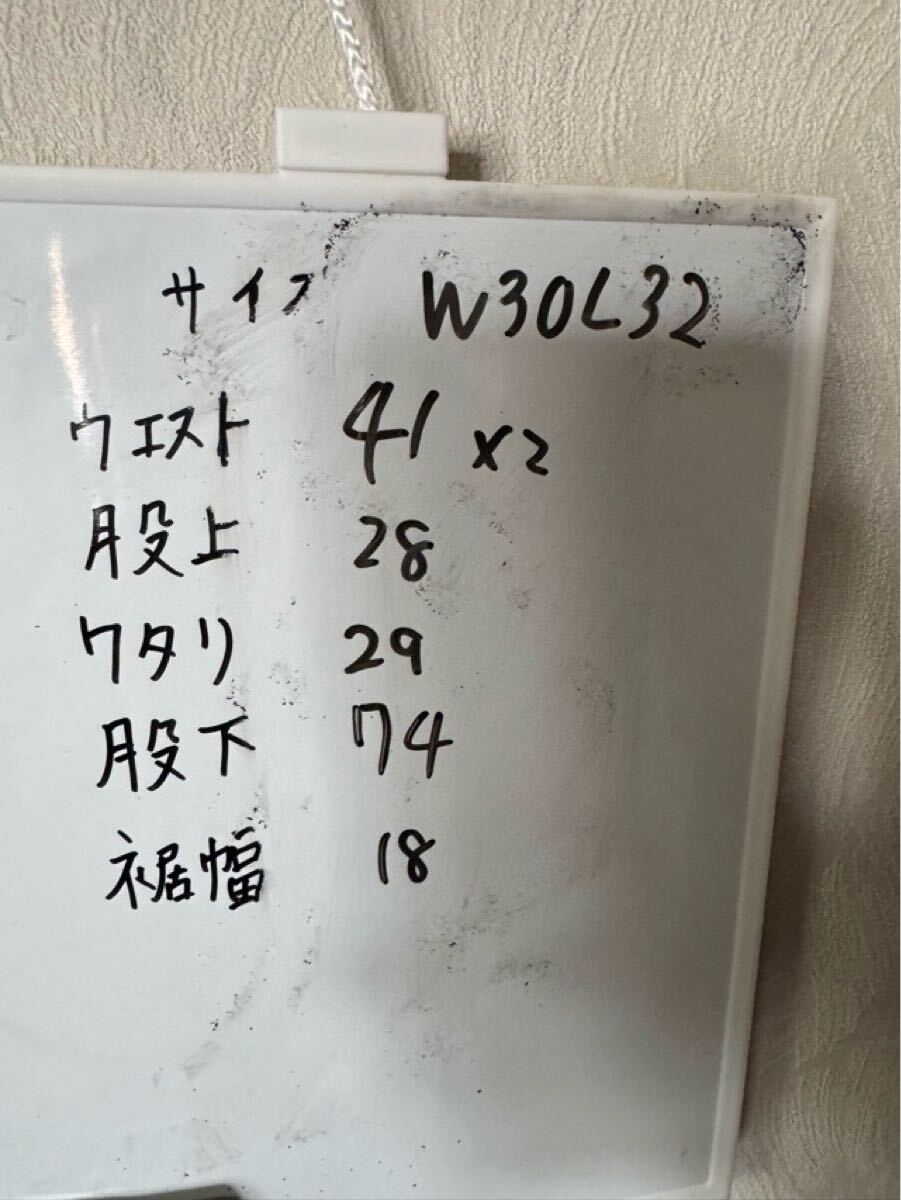 サイズ W30L32
ウエスト 41 x2
股上 28
ワタリ 29
股下 74
裾幅 18